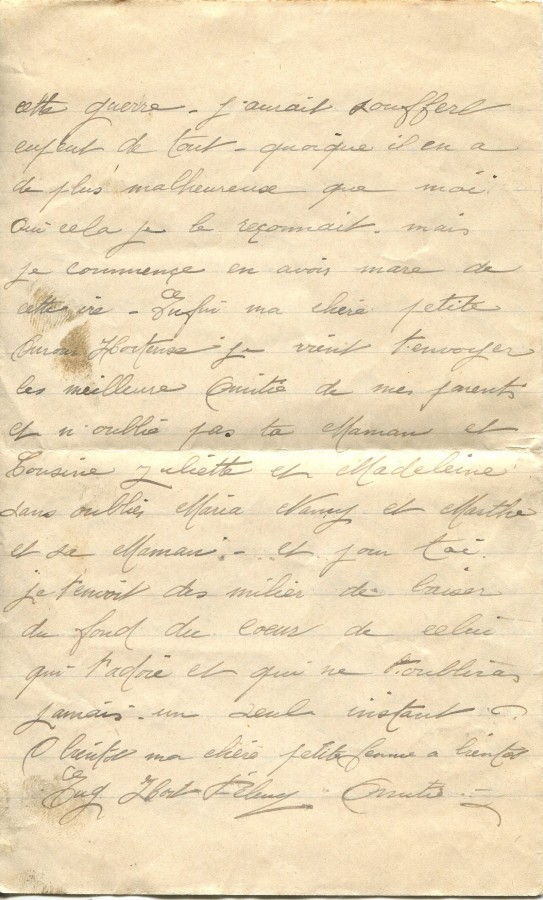 cette guerre - j'aurait souffert
enfent de tout - quoique il en a
de plus malheureuse que moi
Oui cela je le reçonnait. mais
je commençe en avoir mare de
cette vie - Enfin ma chère petite
Hortense je vient t'envoyer
les meilleure Amitié de mes parents
et n'oublie pas ta Maman et
Cousine Juliette et Madeleine
sans oublier Maria Nancy et Marthe
et sa Maman. - et pour toi
je t'envoit des milier de baiser
du fond du coeur de celui
qui t'adore et qui ne t'oublira
jamais un seul instant
A bientot ma chère petite femme a bientot
Eug Hort